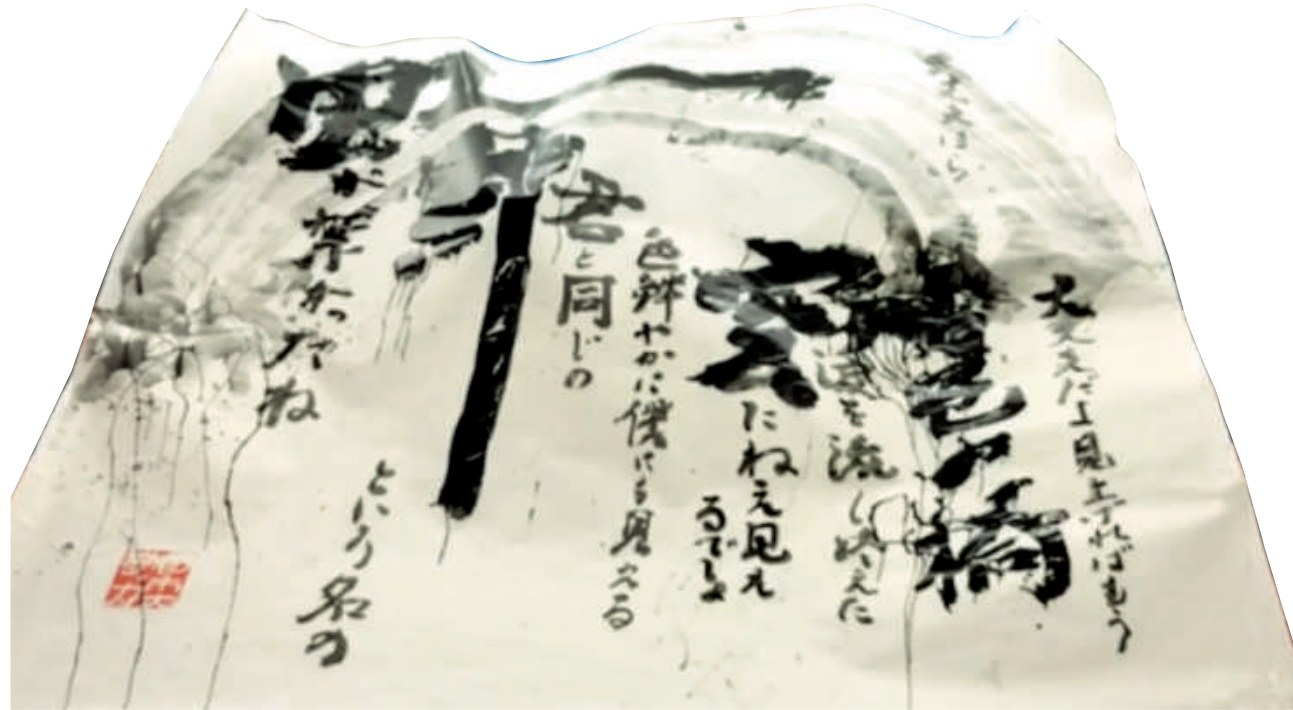 大丈夫だよ見上げればもう
大丈夫ほら
七色の橋
涙を流し終えた
空にねえ見え
るでしょ
色鮮やかに僕にも見える
君と同じの
という名の
が架かったね